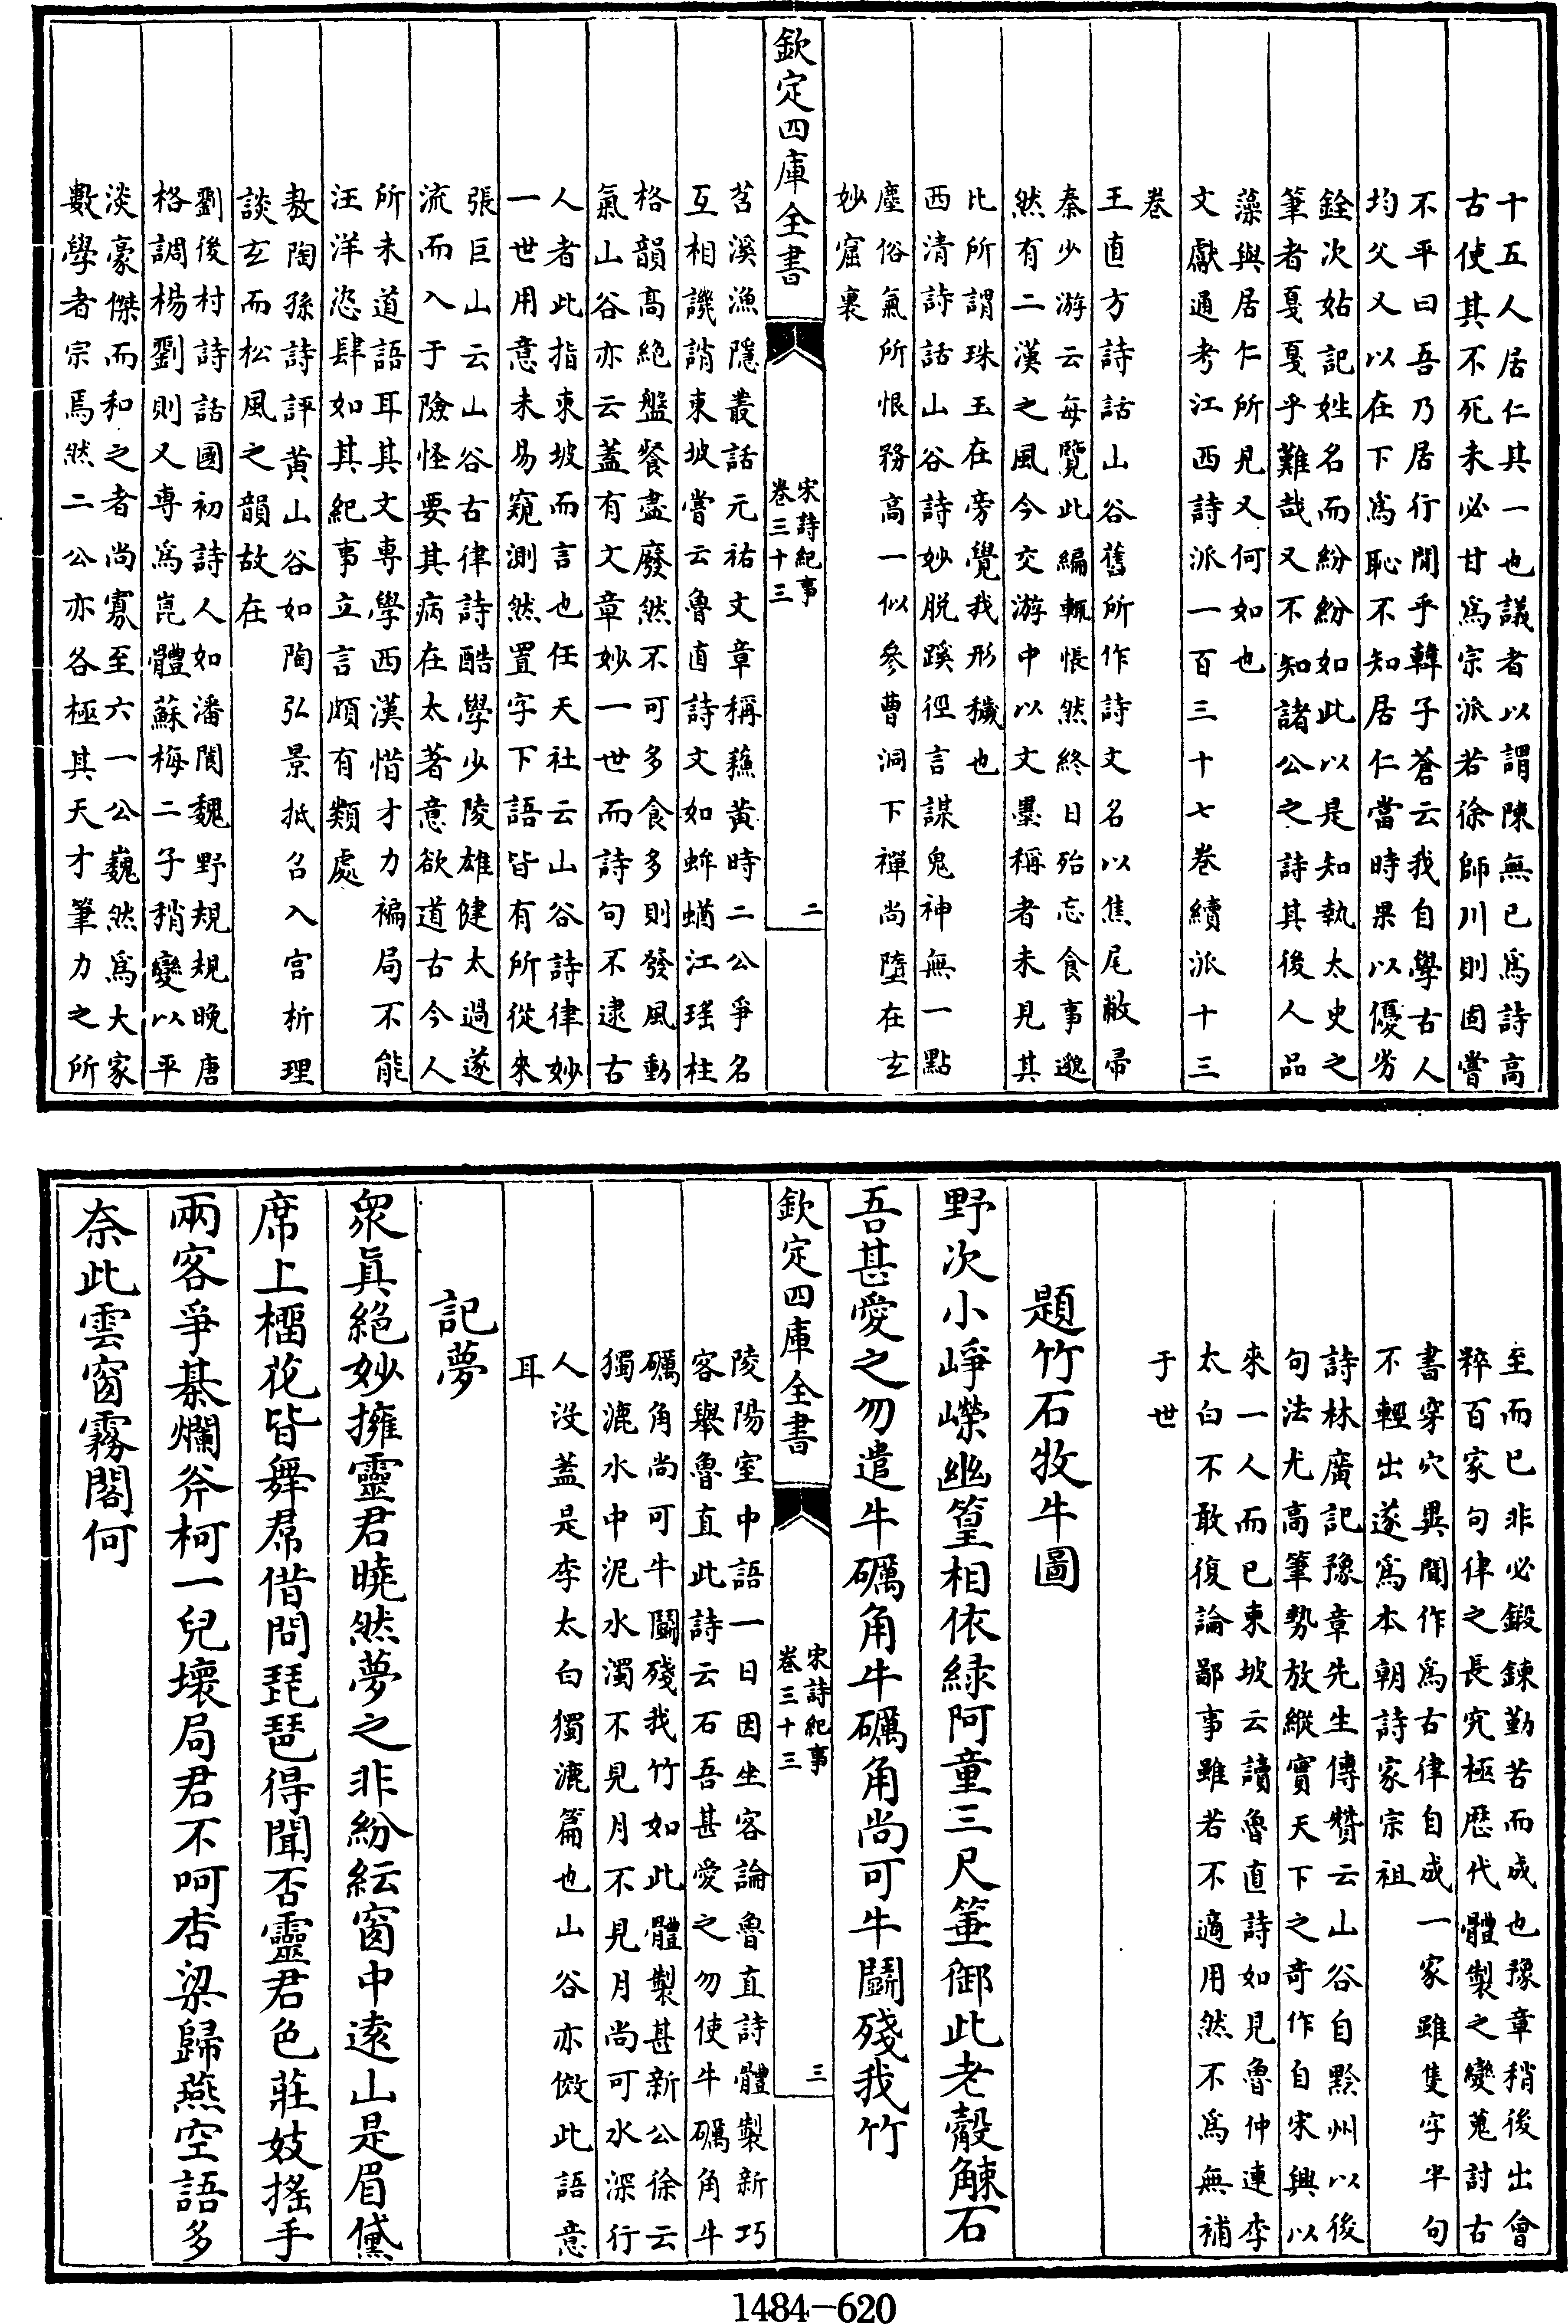 十五人居仁其一也議者以謂陳無已爲詩高
古使其不死未必甘爲宗派若徐師川則固嘗
不平曰吾乃居行間乎韓子蒼云我自學古人
均父又以在下爲恥不知居仁當時果以優劣
銓次姑記姓名而紛紛如此以是知執太史之
筆者戛戛乎難哉又不知諸公之詩其後人品
藻與居仁所見又何如也
文獻通考江西詩派一百三十七卷續派十三
卷
王直方詩話山谷舊所作詩文名以焦尾敝帚
秦少游云每覽此編輒悵然終日殆忘食事邈
然有二漢之風今交游中以文墨稱者未見其
比所謂珠玉在旁覺我形穢也
西清詩話山谷詩妙脱蹊徑言謀鬼神無一點
塵俗氣所恨務高一似參曹洞下禪尚墮在玄
妙窟裏
欽定四庫全書
宋詩紀事
卷三十三
二
苕溪漁隱叢話元祐文章稱蘇黄時二公爭名
互相譏誚東坡嘗云魯直詩文如蝤蛑江瑤柱
格韻高絶盤餐盡廢然不可多食多則發風動
氣山谷亦云蓋有文章妙一世而詩句不逮古
人者此指東坡而言也任天社云山谷詩律妙
一世用意未易窺測然置字下語皆有所從來
張巨山云山谷古律詩酷學少陵雄健太過遂
流而入于險怪要其病在太著意欲道古今人
所未道語耳其文專學西漢惜才力褊局不能
汪洋恣肆如其紀事立言頗有類處
敖陶孫詩評黄山谷如陶弘景祇召入宫析理
談玄而松風之韻故在
劉後村詩話國初詩人如潘閬魏野規規晚唐
格調楊劉則又專爲崑體蘇梅二子稍變以平
淡豪傑而和之者尚寡至六一公巍然爲大家
數學者宗焉然二公亦各極其天才筆力之所
至而已非必鍛鍊勤苦而成也豫章稍後出會
粹百家句律之長究極歷代體製之變蒐討古
書穿穴異聞作爲古律自成一家雖隻字半句
不輕出遂爲本朝詩家宗祖
詩林廣記豫章先生傳贊云山谷自黔州以後
句法尤高筆勢放縱實天下之奇作自宋興以
來一人而已東坡云讀魯直詩如見魯仲連李
太白不敢復論鄙事雖若不適用然不爲無補
于世
題竹石牧牛圖
野次小崢嶸幽篁相依緑阿童三尺箠御此老觳觫石
吾甚愛之勿遣牛礪角牛礪角尚可牛鬭殘我竹
欽定四庫全書
宋詩紀事
卷三十三
三
陵陽室中語一日因坐客論魯直詩體製新巧
客舉魯直此詩云石吾甚愛之勿使牛礪角牛
礪角尚可牛鬭殘我竹如此體製甚新公徐云
獨漉水中泥水濁不見月不見月尚可水深行
人没蓋是李太白獨漉篇也山谷亦倣此語意
耳
記夢
衆眞絶妙擁靈君曉然夢之非紛紜窗中遠山是眉黛
席上榴花皆舞帬借問琵琶得聞否靈君色莊妓搖手
兩客爭棊爛斧柯一兒壞局君不呵杏梁歸燕空語多
奈此雲窗霧閣何
1484-620